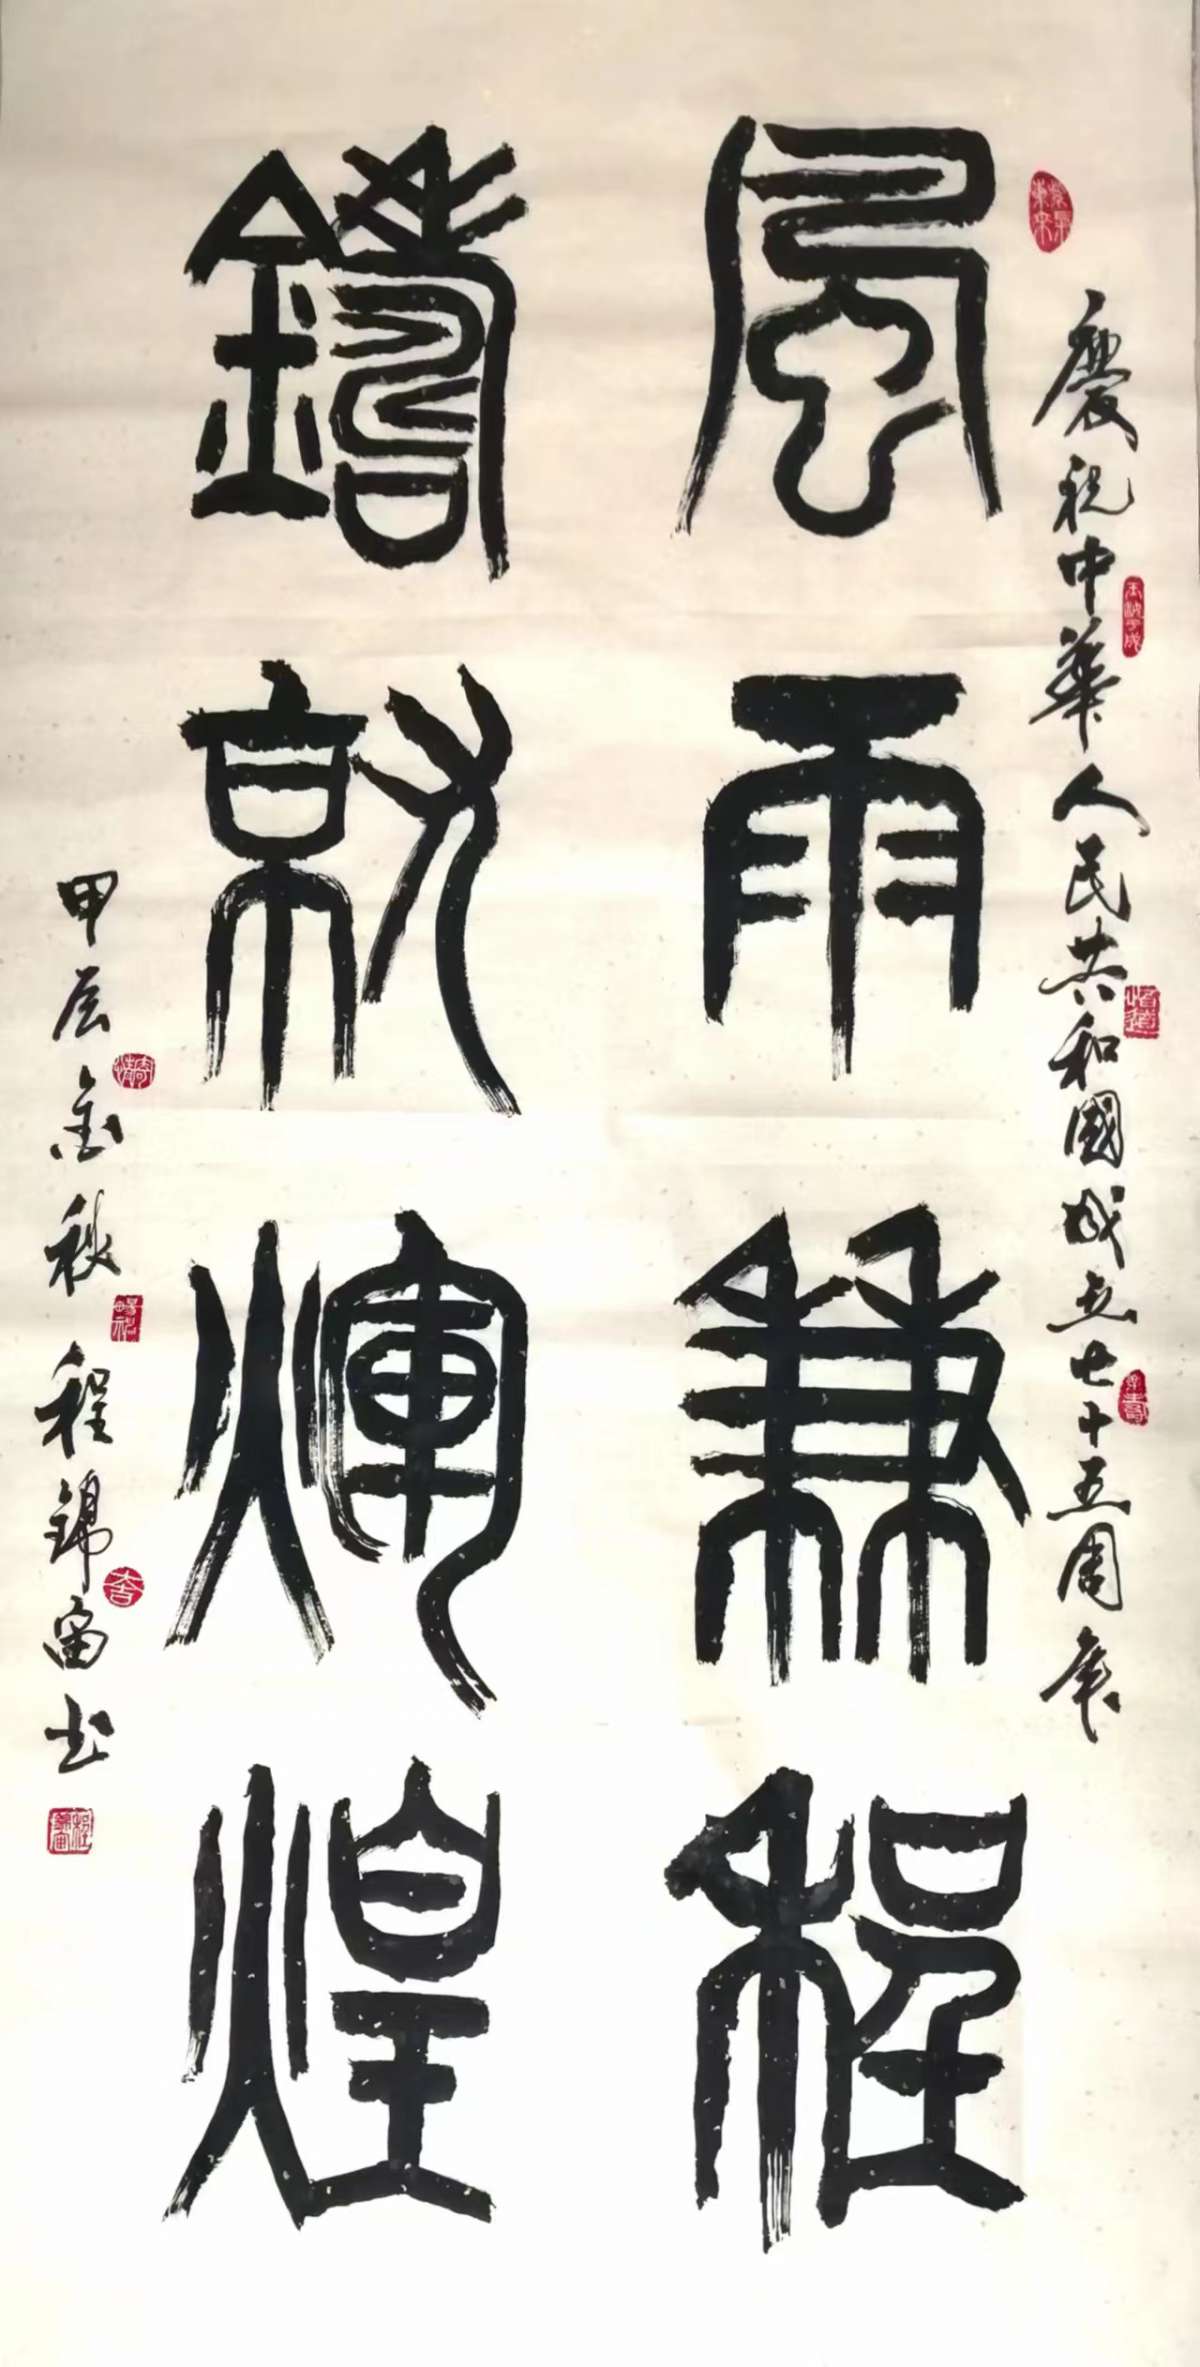 慶祝中華人民共和國成立七十五周年
風雨兼程
鑄就輝煌
甲辰金秋程錦富书
紫氣東來
大吉